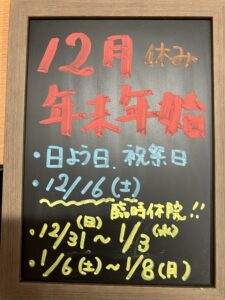 12月 休み
年末年始
・日よう日、祝祭日
・12/16(土)
臨時休院!!
・12/31(日)~1/3(水)
・1/6(土)~1/8(月)